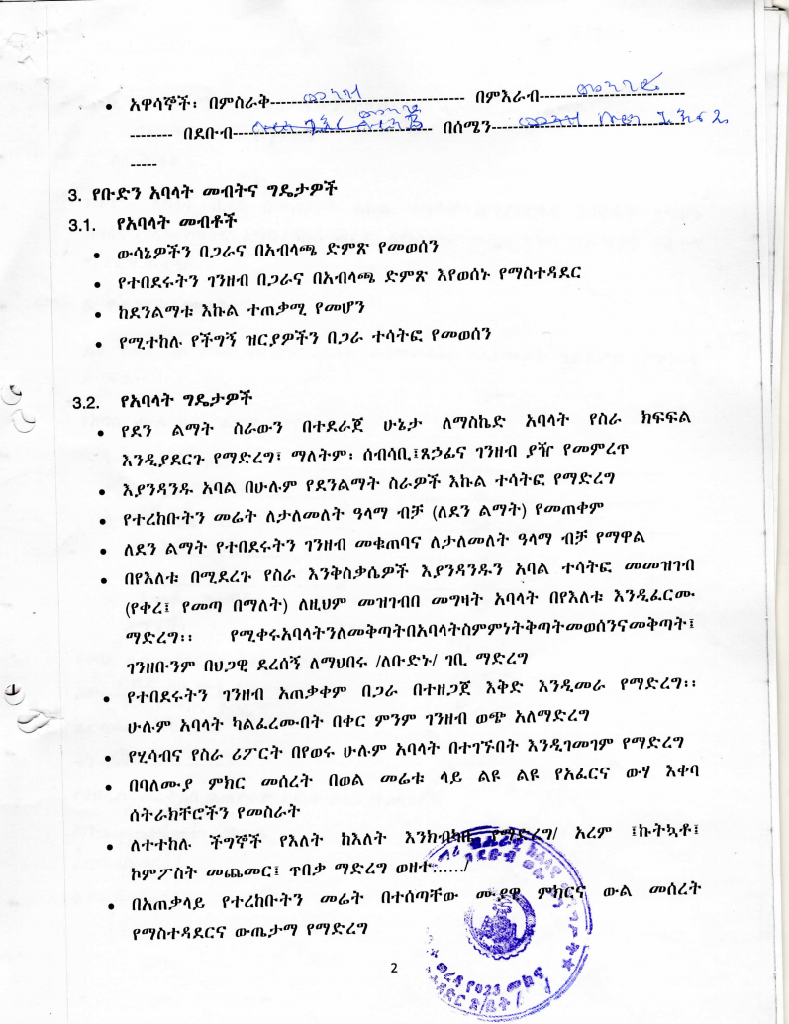 • አዋሳኞች፡ በምስራቅ---------------------------------- በምእራብ--------------------------
-------- በደቡብ----------------------------------- በሰሜን----------------------------------
-----
3. የቡድን አባላት መብትና ግዴታዎች
3.1. የአባላት መብቶች
• ውሳኔዎችን በጋራና በአብላጫ ድምጽ የመወሰን
• የተበደሩትን ገንዘብ በጋራና በአብላጫ ድምጽ እየወሰኑ የማስተዳደር
• ከደንልማቱ እኩል ተጠቃሚ የመሆን
• የሚተከሉ የችግኝ ዝርያዎችን በጋራ ተሳትፎ የመወሰን
3.2. የአባላት ግዴታዎች
• የደን ልማት ስራውን በተደራጀ ሁኔታ ለማስኬድ አባላት የስራ ክፍፍል
እንዲያደርጉ የማድረግ፣ ማለትም፡ ሰብሳቢ፤ጸኃፊና ገንዘብ ያዥ የመምረጥ
• እያንዳንዱ አባል በሁሉም የደንልማት ስራዎች እኩል ተሳትፎ የማድረግ
• የተረከቡትን መሬት ለታለመለት ዓላማ ብቻ (ለደን ልማት) የመጠቀም
• ለደን ልማት የተበደሩትን ገንዘብ መቁጠባና ለታለመለት ዓላማ ብቻ የማዋል
• በየእለቱ በሚደረጉ የስራ እንቅስቃሴዎች እያንዳንዱን አባል ተሳትፎ መመዝገብ
(የቀረ፤ የመጣ በማለት) ለዚህም መዝገብበ መግዛት አባላት በየእለቱ እንዲፈርሙ
ማድረግ፡፡ የሚቀሩአባላትንለመቅጣትበአባላትስምምነትቅጣትመወሰንናመቅጣት፤
ገንዘቡንም በህጋዊ ደረሰኝ ለማህበሩ /ለቡድኑ/ ገቢ ማድረግ
• የተበደሩትን ገንዘብ አጠቃቀም በጋራ በተዘጋጀ እቅድ እንዲመራ የማድረግ፡፡
ሁሉም አባላት ካልፈረሙበት በቀር ምንም ገንዘብ ወጭ አለማድረግ
• የሂሳብና የስራ ሪፖርት በየወሩ ሁሉም አባላት በተገኙበት እንዲገመገም የማድረግ
• በባለሙያ ምክር መሰረት በወል መሬቱ ላይ ልዩ ልዩ የአፈርና ውሃ እቀባ
ሰትራክቸሮችን የመስራት
• ለተተከሉ ችግኞች የእለት ከእለት እንክብካቤ የማድረግ/ አረም ፤ኩትኳቶ፤
ኮምፖስት መጨመር፤ ጥበቃ ማድረግ ወዘተ....../
• በአጠቃላይ የተረከቡትን መሬት በተሰጣቸው ሙያዊ ምክርና ውል መሰረት
የማስተዳደርና ውጤታማ የማድረግ
2